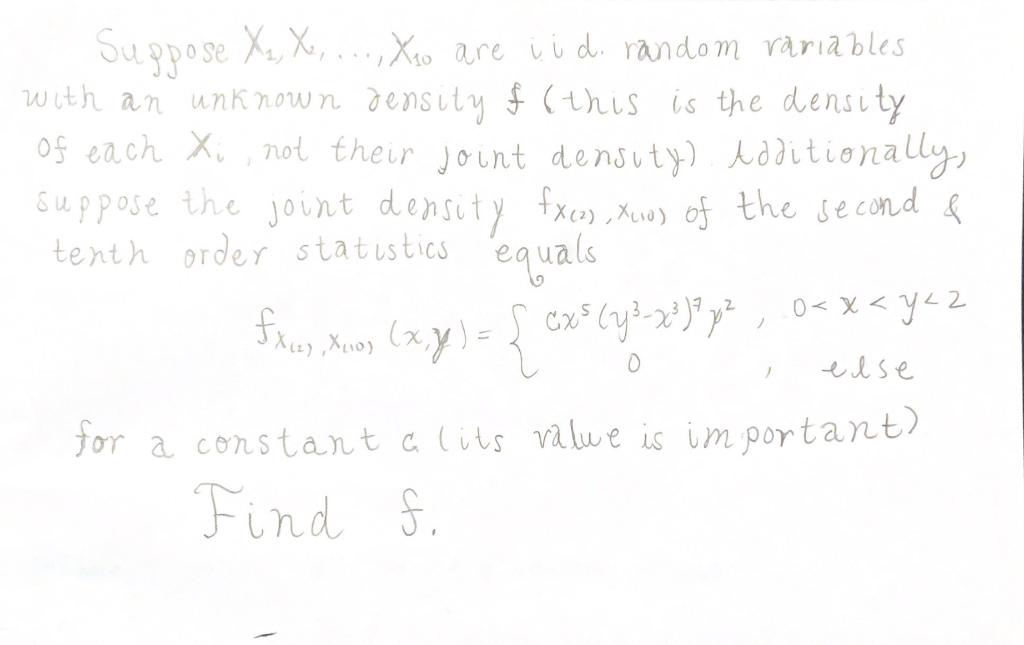 Suppose X₂, X, ..., X₁₀ are i.i.d. random variables
with an unknown density f (this is the density
of each Xᵢ, not their joint density) Additionally,
suppose the joint density f_X₍₂₎,X₍₁₀₎ of the second &
tenth order statistics equals
f_X₍₂₎,X₍₁₀₎ (x,y) = { cx⁵(y³-x³)⁷y² , 0<x<y<2
0 , else
for a constant c (its value is important)
Find f.